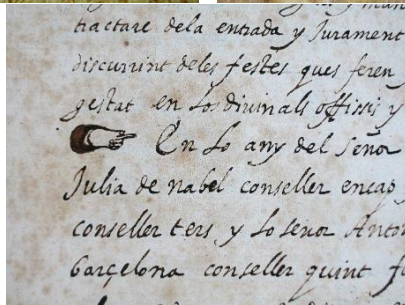 tractare dela entrada y Jurament
discurrint deles festes ques feren
gestat en los divinals offissis y
En Lo any del señor
Julia de nabel conseller encap
conseller ters y Lo señor Anton
barçelona conseller quint